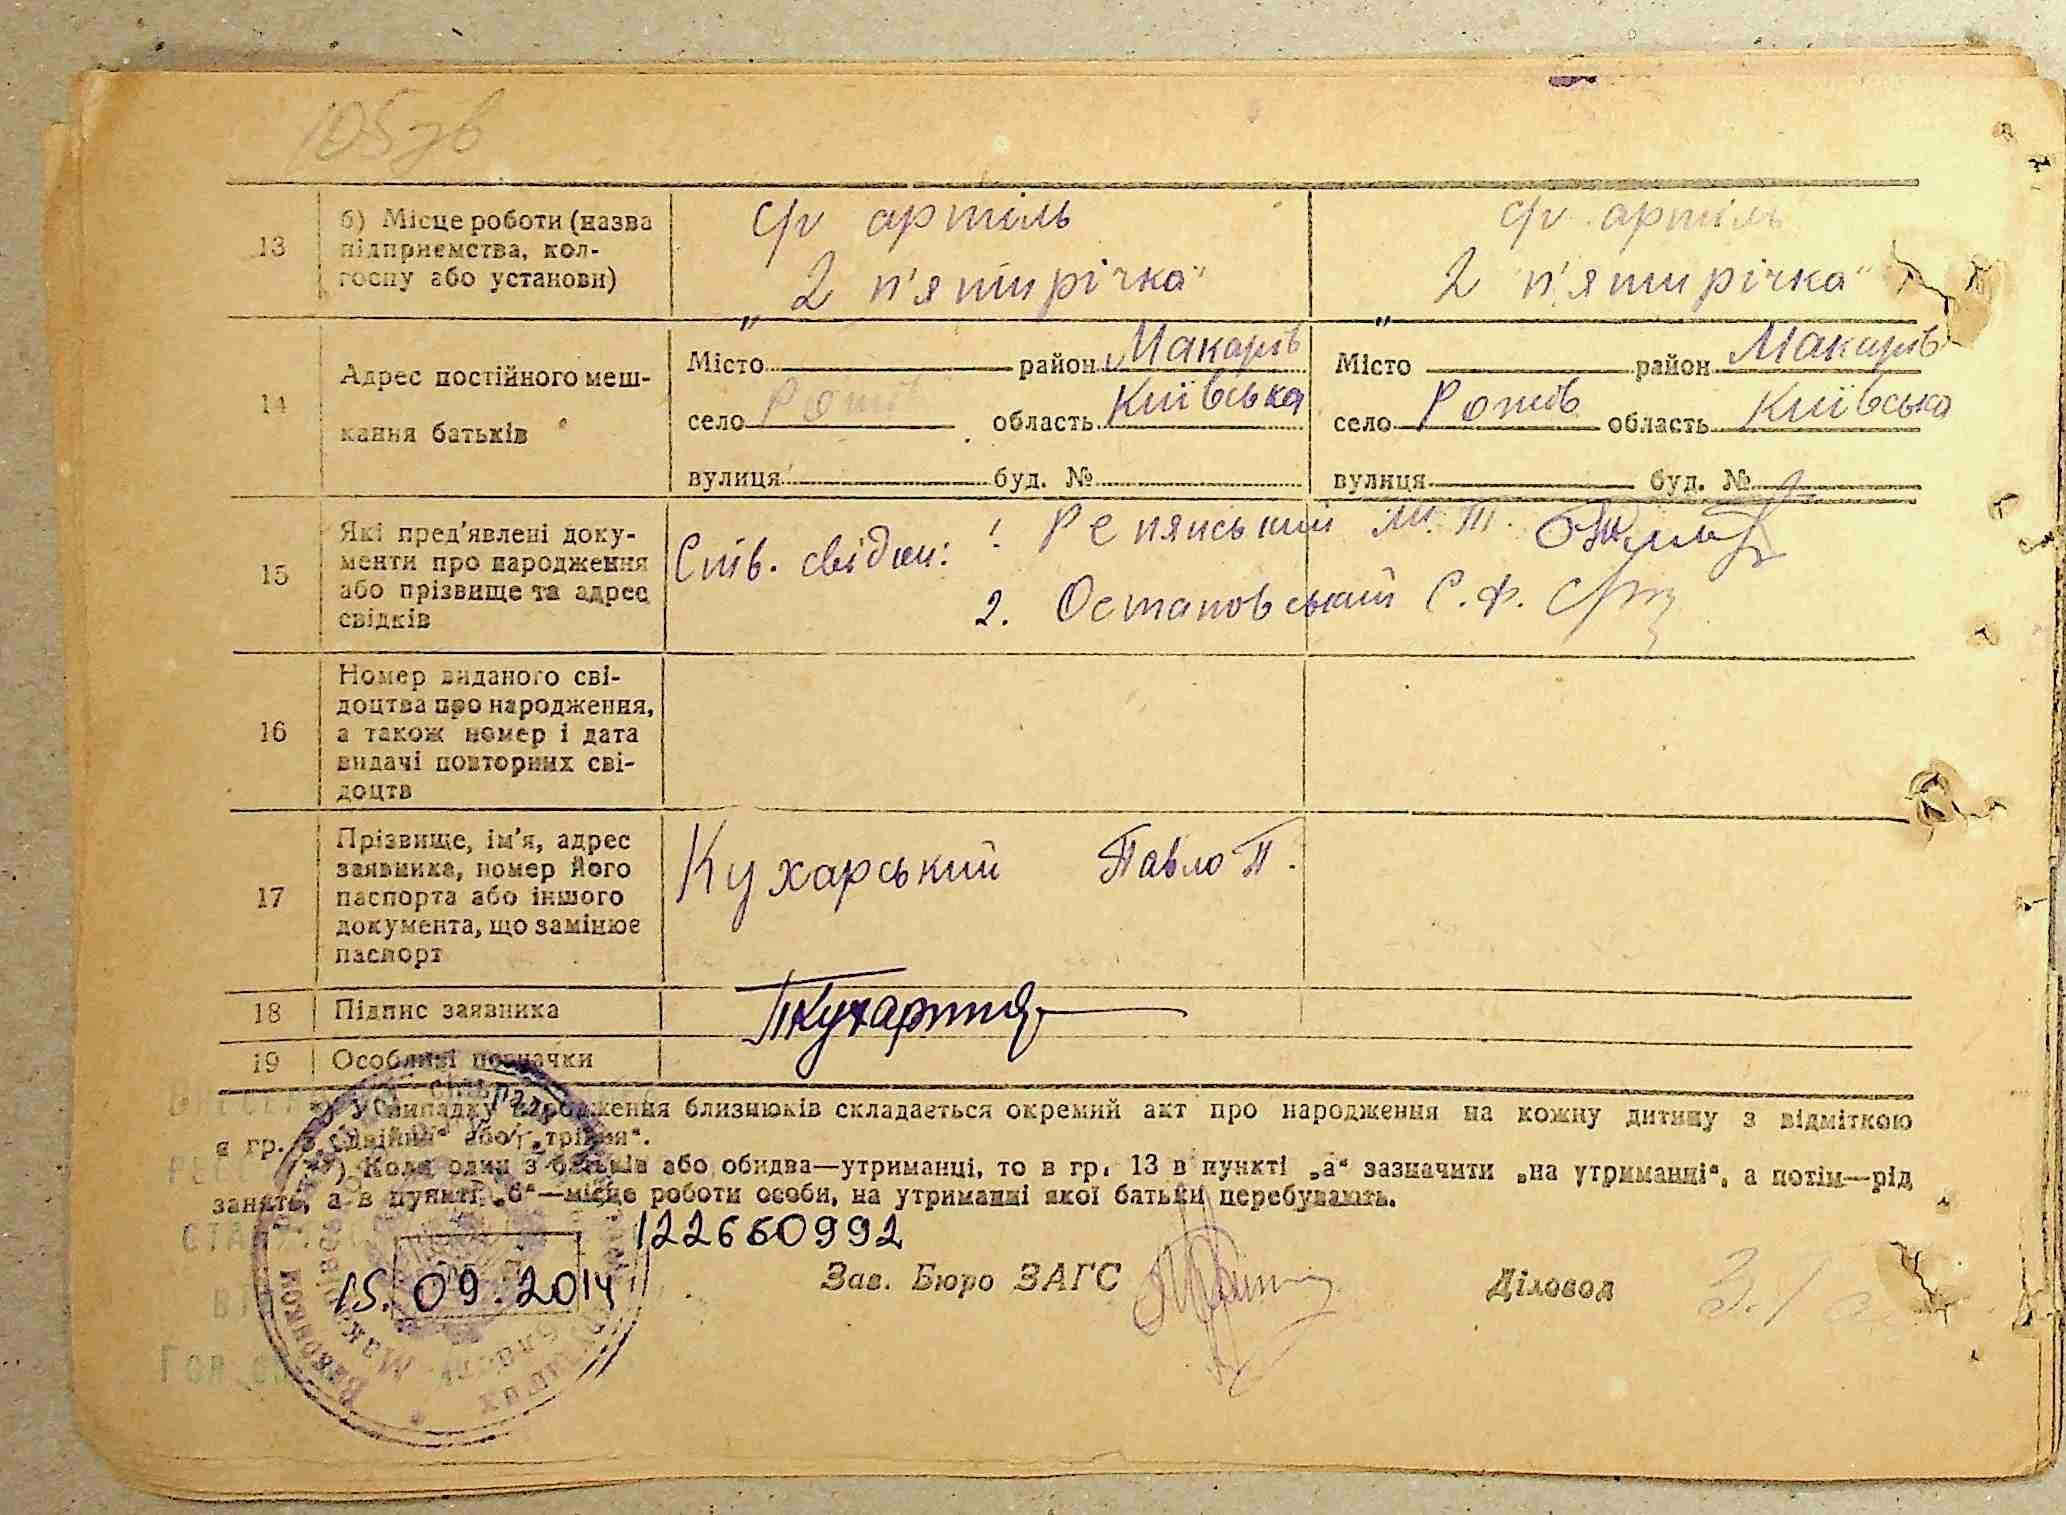 105 зв
13
б) Місце роботи (назва
підприємства, кол-
госпу або установи)
с/г артіль
„2 п'ятирічка"
с/г артіль
„2 п'ятирічка"
14
Адрес постійного меш-
кання батьків
Місто район Макарів
село Рожів область Київська
вулиця буд. №
Місто район Макарів
село Рожів область Київська
вулиця буд. №
15
Які пред'явлені доку-
менти про народження
або прізвище та адрес
свідків
свідки: 1. Репянський М. Т.
2. Остаповський С. Ф.
16
Номер виданого сві-
доцтва про народження,
а також номер і дата
видачі повторних сві-
доцтв
17
Прізвище, ім'я, адрес
заявника, номер його
паспорта або іншого
документа, що замінює
паспорт
Кухарський Павло П.
18
Підпис заявника
19
Особливі позначки
*) У випадку народження близнюків складається окремий акт про народження на кожну дитину з відміткою
в гр. „двійня" або „трійня".
) Коли один з батьків або обидва—утриманці, то в гр. 13 в пункті „а" зазначити „на утриманні", а потім—рід
занять, а в пункті „б"—місце роботи особи, на утриманні якої батьки перебувають.
122660992
15.09.2014
Зав. Бюро ЗАГС
Діловод